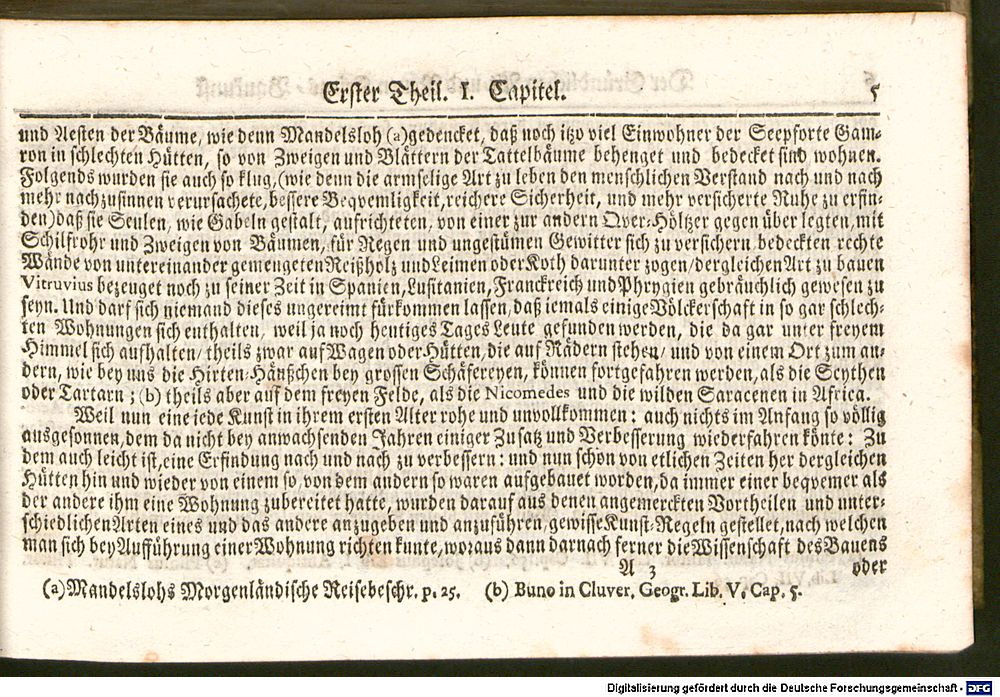 Erster Theil. I. Capitel. 5
und Aesten der Bäume, wie denn Mandelsloh (a) gedencket, daß noch itzo viel Einwohner der Seepforte Gam-
ron in schlechten Hütten, so von Zweigen und Blättern der Tattelbäume behenget und bedecket sind wohnen.
Folgends wurden sie auch so klug, (wie denn die armselige Art zu leben den menschlichen Verstand nach und nach
mehr nachzusinnen verursachete, bessere Beqvemligkeit, reichere Sicherheit, und mehr versicherte Ruhe zu erfin-
den) daß sie Seulen, wie Gabeln gestalt, aufrichteten, von einer zur andern Qver-Höltzer gegen über legten, mit
Schilfrohr und Zweigen von Bäumen, für Regen und ungestümen Gewitter sich zu versichern, bedeckten rechte
Wände von untereinander gemengeten Reißholz und Leimen oder Koth darunter zogen/ dergleichen Art zu bauen
Vitruvius bezeuget noch zu seiner Zeit in Spanien, Lusitanien, Franckreich und Phrygien gebräuchlich gewesen zu
seyn. Und darf sich niemand dieses ungereimt fürkommen lassen, daß iemals einige Völckerschaft in so gar schlech-
ten Wohnungen sich enthalten, weil ja noch heutiges Tages Leute gefunden werden, die da gar unter freyem
Himmel sich aufhalten/ theils zwar auf Wagen oder Hütten, die auf Rädern stehen/ und von einem Ort zum an-
dern, wie bey uns die Hirten-Häußchen bey grossen Schäfereyen, können fortgefahren werden, als die Scythen
oder Tartarn; (b) theils aber auf dem freyen Felde, als die Nicomedes und die wilden Saracenen in Africa.
Weil nun eine iede Kunst in ihrem ersten Alter rohe und unvollkommen: auch nichts im Anfang so völlig
ausgesonnen, dem da nicht bey anwachsenden Jahren einiger Zusatz und Verbesserung wiederfahren könte: Zu
dem auch leicht ist, eine Erfindung nach und nach zu verbessern: und nun schon von etlichen Zeiten her dergleichen
Hütten hin und wieder von einem so, von dem andern so waren aufgebauet worden, da immer einer beqvemer als
der andere ihm eine Wohnung zubereitet hatte, wurden darauf aus denen angemerckten Vortheilen und unter-
schiedlichen Arten eines und das andere anzugeben und anzuführen, gewisse Kunst-Regeln gestellet, nach welchen
man sich bey Aufführung einer Wohnung richten kunte, woraus dann darnach ferner die Wissenschaft des Bauens
A 3 oder
(a) Mandelslohs Morgenländische Reisebeschr. p. 25. (b) Buno in Cluver. Geogr. Lib. V. Cap. 5.
Digitalisierung gefördert durch die Deutsche Forschungsgemeinschaft - DFG